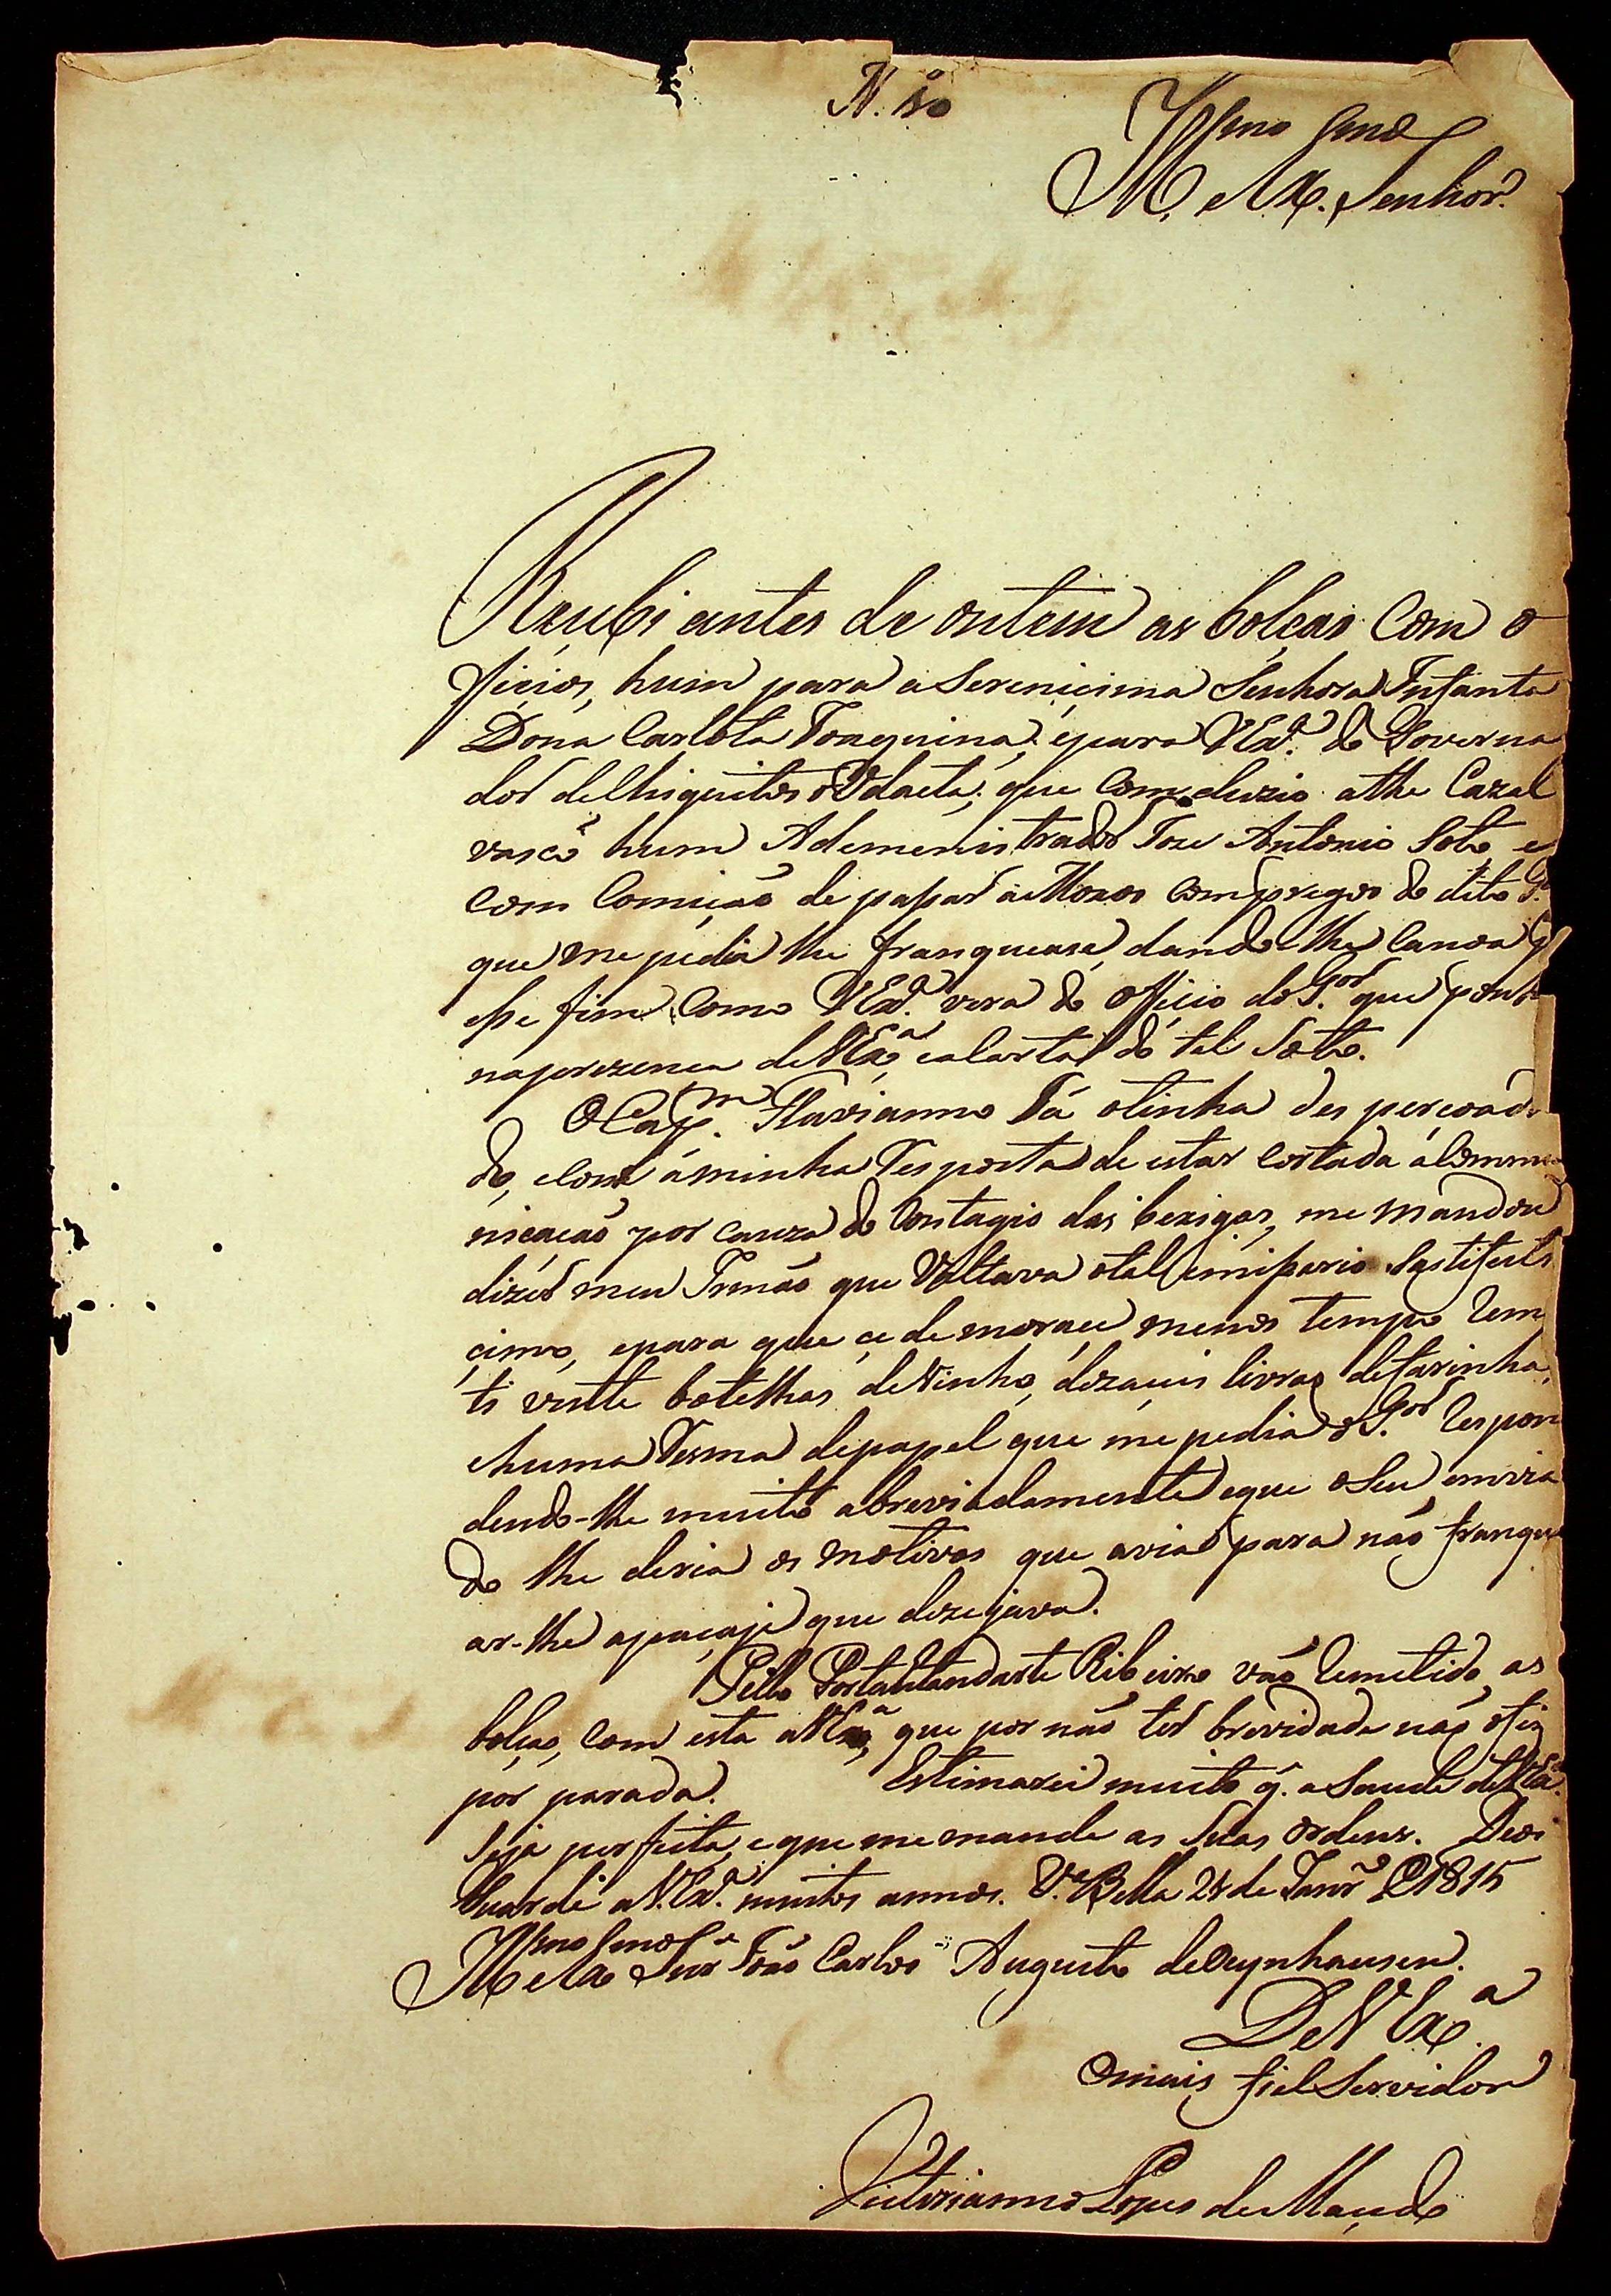 N. 10
Illmo Exmo
Senhor
Recubi antes de ontem as bolças Com o
ficios, hum para a Sereniçima Senhora Infanta
Dona Carlota Joaquina, e para VExª. do Governa
dor de Chiquitos Udaeta, que Comduzio athe Cazal
vasco hum Ademenistrador Joze Antonio Soto, e
com Comição de paçar a Mozos Com pregos do dito G.
que me pedia lhe franquease, dando-lhe Canoa p
esse fim, Como VExª. vera do Oficio do G.or que ponho
na prezença de VExª, e a Carta do tal Soto.
O Capm. Flavianno Já o tinha des perçoadi
do, e Com á minha Resposta de estar Cortada á Commu
nicação por cauza do Contagio das bexigas, me mandou
dizer meu Irmão que Voltava o tal imiçario Sastifeits
çimo, e para que çe demoraçe menos tempo Rem
ti vinte botelhas de Vinho, dezaçeis livras de farinha,
e huma Resma de papel que me pedia o G.or Respon
dendo-lhe muito abreviadamente e que o Seu envia
do lhe deria os motivos que avia para não franque
ar-lhe a paçaje que dezejava.
Pello Porta Estandarte Ribeiro vão Remetido as
bolças, com esta a VExª, que por não ter brevidade não o fiz
por parada. Estimarei muito q. a Saude de VExª.
Seja perfeita, e que me mande as Suas Ordens. Deos
Guarde a V.Exª. muitos annos. Vª. Bella 28 de Janrº D 1815
Illmo Exmo Snr João Carlos Augusto de Oeynhausen.
De V Exª.
O mais fiel Servidor
Victorianno Lopes de Maçedo